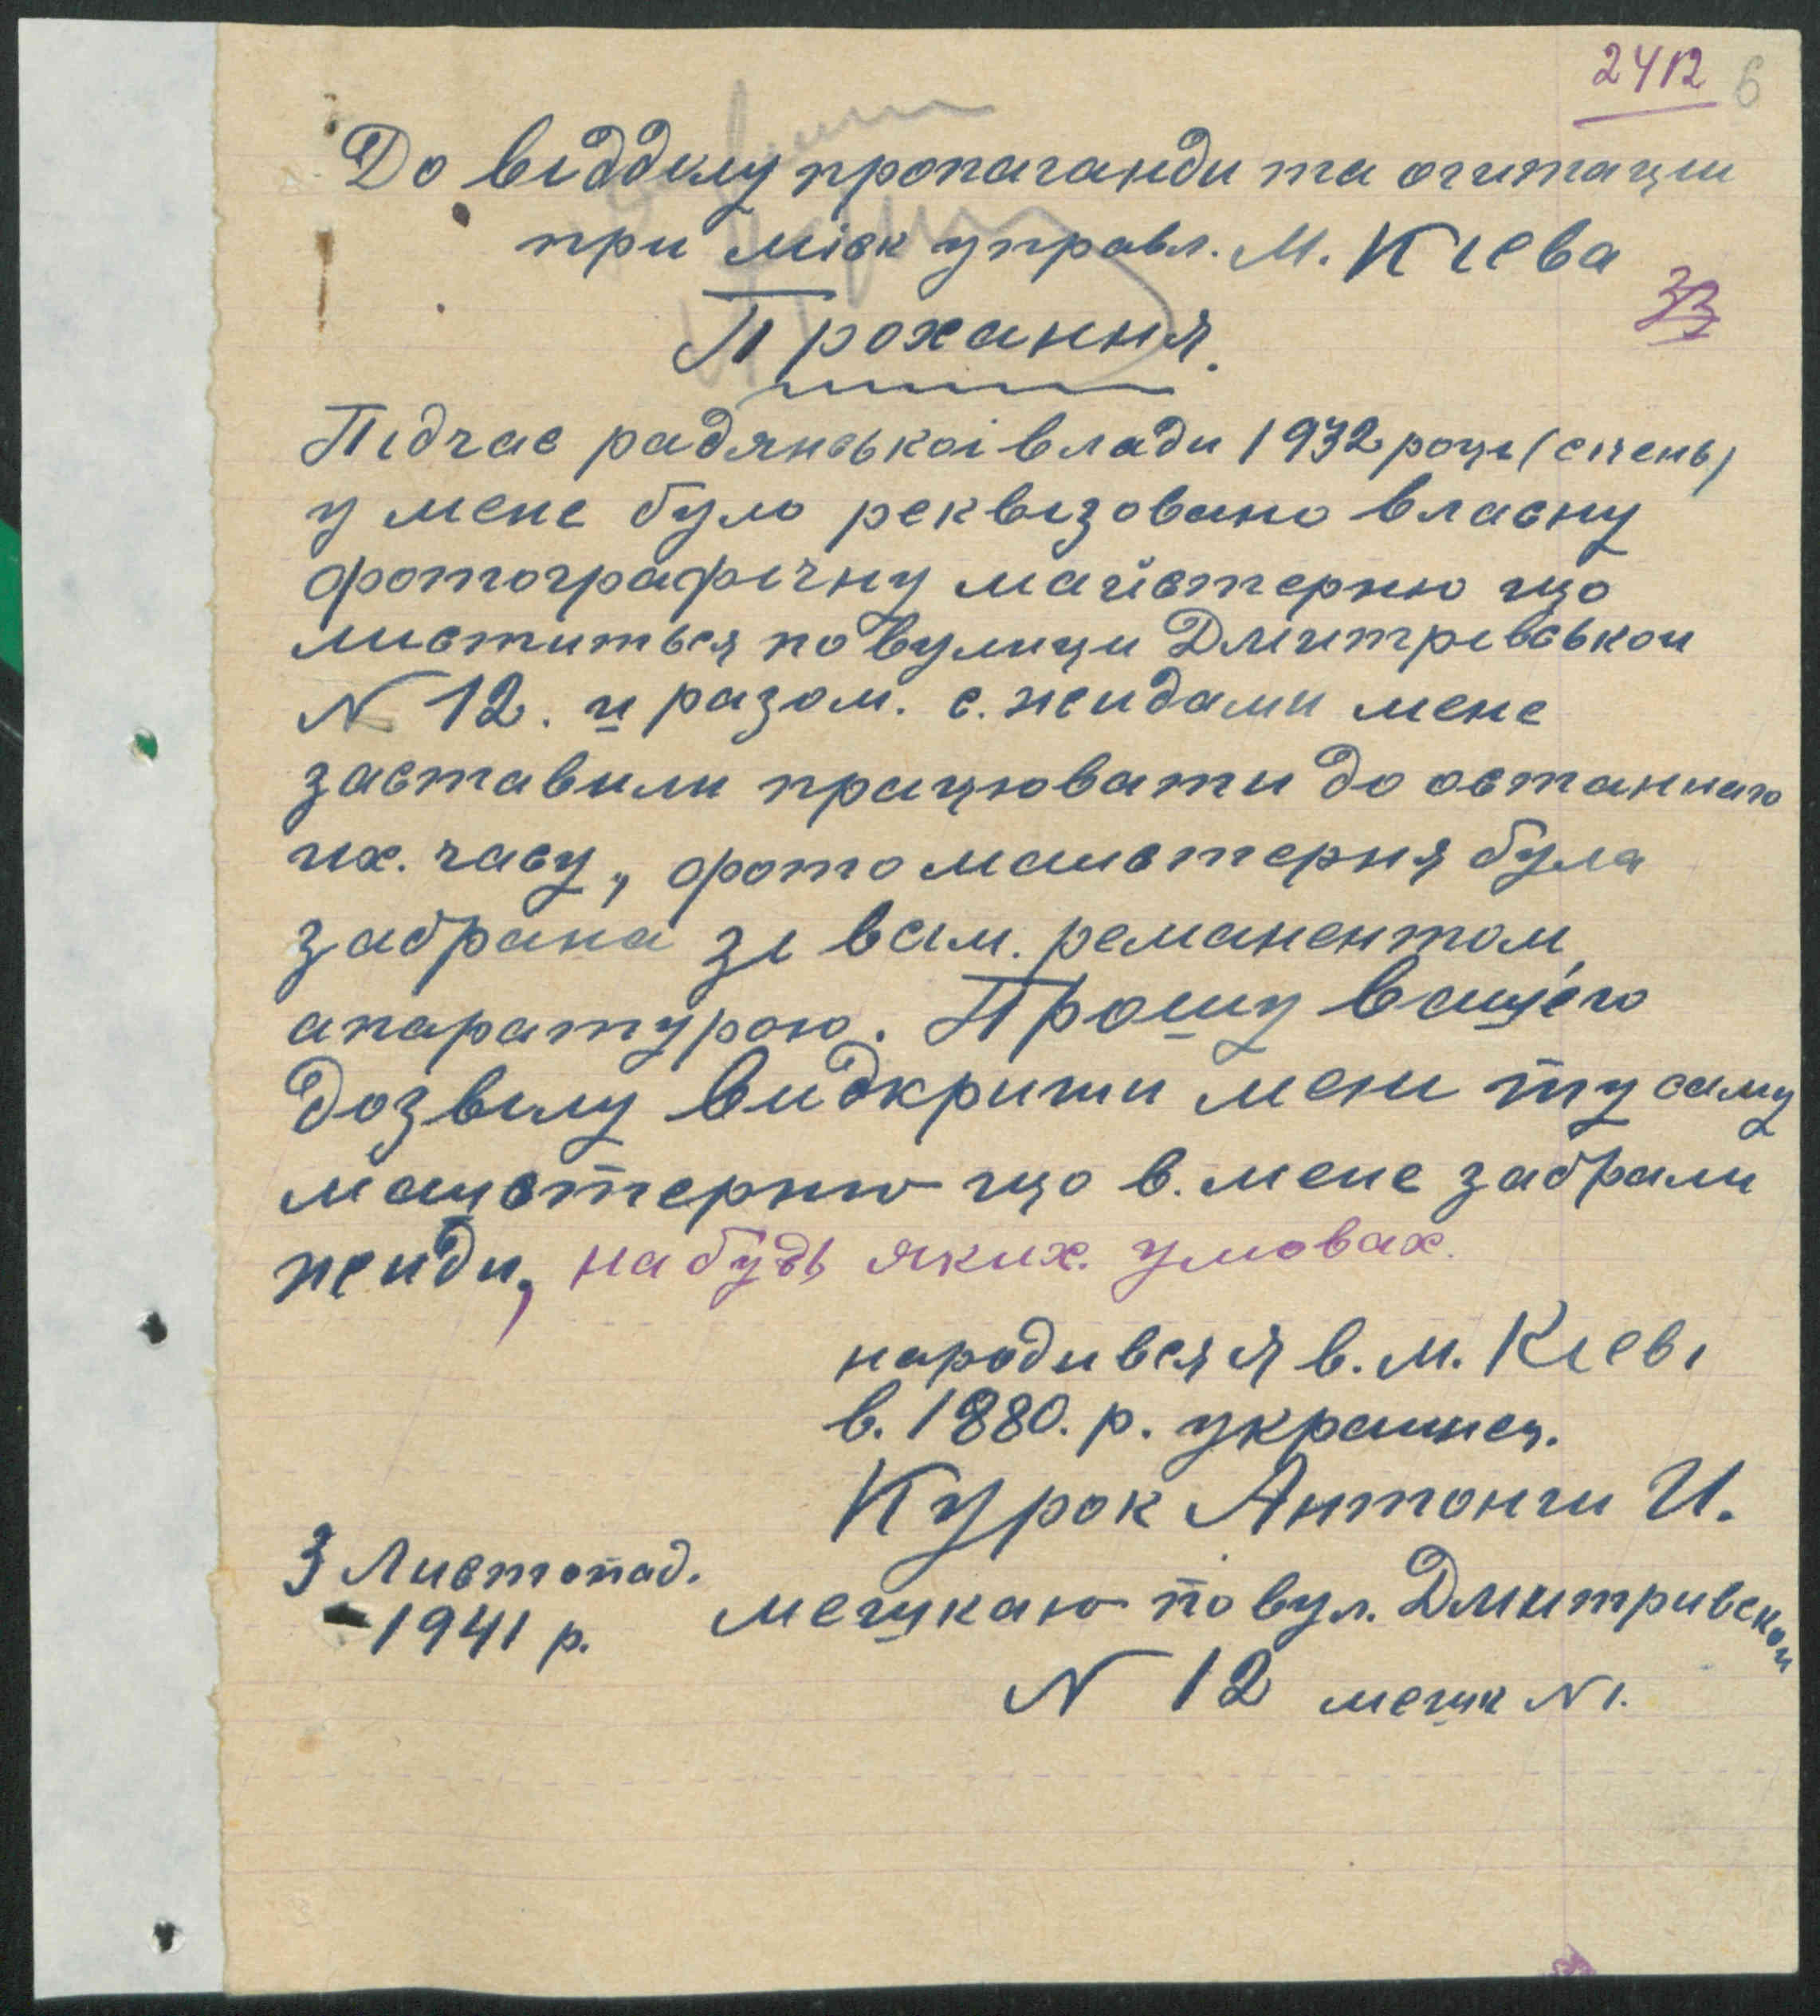 2412 6
До відділу пропаганди та огитации
при міск управл. М. Кієва
33
Прохання.
Підчас радянськоі влади 1932 році (січень)
у мене було реквізовано власну
фотографічну майстерню що
миститься по вулици Дмитрівськои
N 12. и разом. с. жидами мене
заставили працювати до останнаго
их. часу, фото маистерня була
забрана зі всим. реманентом,
апаратурою. Прошу вашего
дозвілу видкрити мени ту саму
маистерню що в. мене забрали
жиди, на будь яких. умовах.
народився я в. м. Кієві
в. 1880. р. украинец.
Курок Антонии И.
3 Листопад.
1941 р.
мешкаю по вул. Дмитривскои
N 12 мешк N 1.